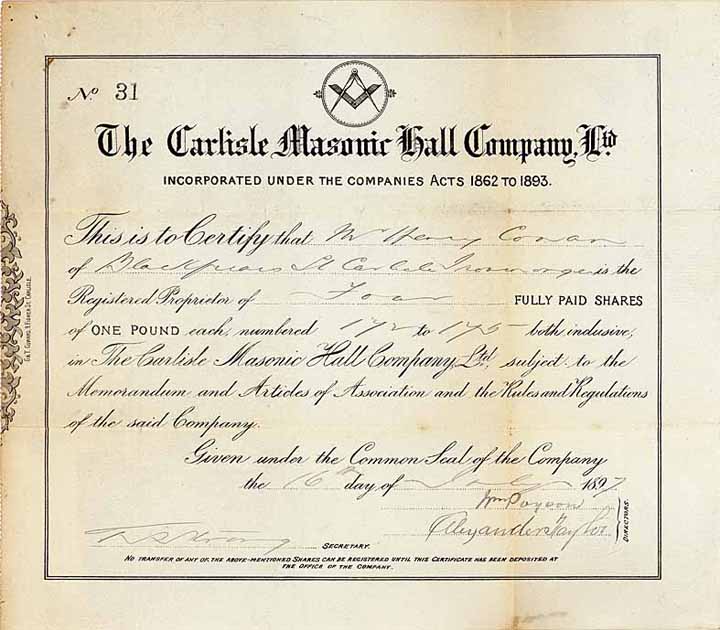 No 31
The Carlisle Masonic Hall Company, Ltd
INCORPORATED UNDER THE COMPANIES ACTS 1862 TO 1893.
This is to Certify that Mr Henry Cowan
of Blackfriars St Carlisle Ironmonger is the
Registered Proprietor of Four FULLY PAID SHARES
of ONE POUND each, numbered 172 to 175 both inclusive,
in The Carlisle Masonic Hall Company, Ltd, subject to the
Memorandum and Articles of Association and the Rules and Regulations
of the said Company.
Given under the Common Seal of the Company
the 16th day of July 1897
Alexander Taylor
DIRECTORS.
SECRETARY.
NO TRANSFER OF ANY OF THE ABOVE-MENTIONED SHARES CAN BE REGISTERED UNTIL THIS CERTIFICATE HAS BEEN DEPOSITED AT
THE OFFICE OF THE COMPANY.